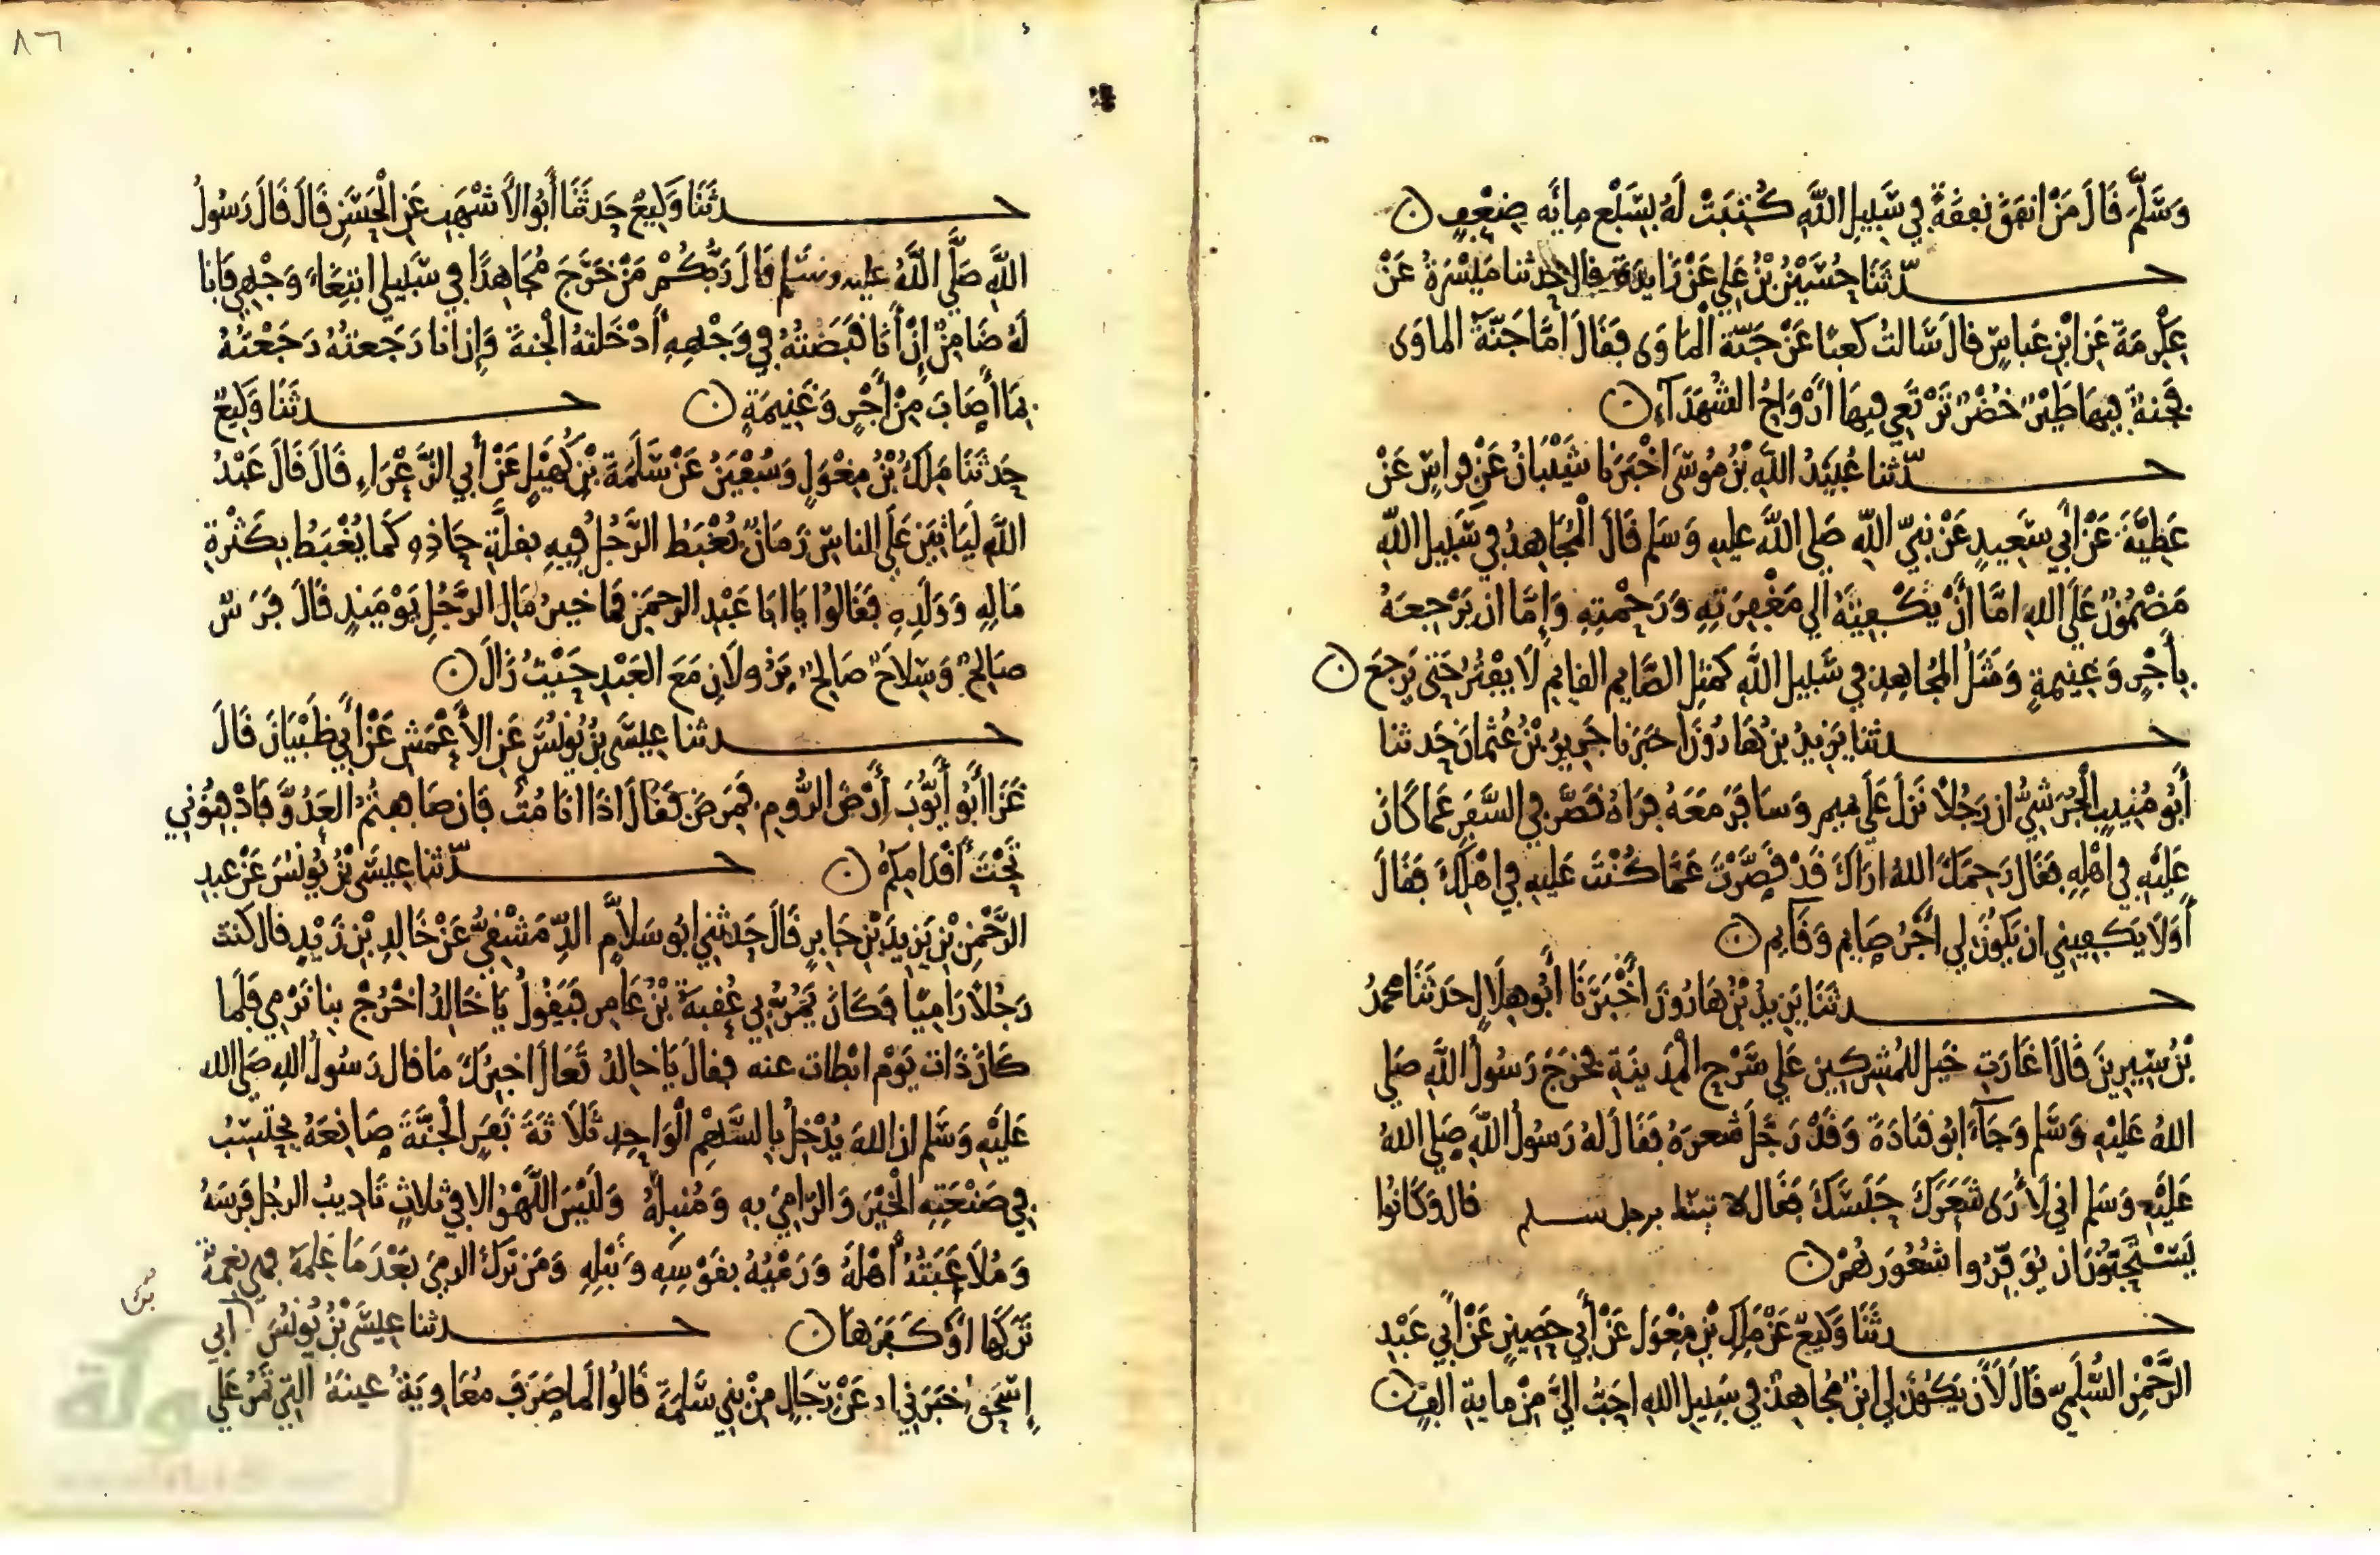 وَسَلَّمَ قَالَ مَنْ انفَقَ نفقةً فِي سَبِيلِ اللَّهِ كُتِبَتْ لَهُ بِسَبْعِ مِائَه ضِعْفٍ ن
حـدّثَنَا حُسَيْنُ بْنُ عَلِي عَنْ زَايِدَةَ قال حدثنا مَيْسَرَةُ عَنْ
عِكْرِمَةَ عَنِ ابْنِ عَبَاسٍ قالَ سَالتُ كَعبًا عَنْ جَنّةِ الْمَاوَى فَقَالَ امَّا جَنّةُ الماوَى
فَجنةٌ فِيهَا طَيْرٌ خُضْرٌ تَرْتَعِي فِيهَا ارْوَاحُ الشُهَدَآءِ ن
حـدّثنا عُبَيْدُ اللَّهِ بْنُ مُوسَى اخْبَرَنا شَيْبَانُ عَنْ فِرَاسٍ عَنْ
عَطِيَّةَ عَنْ أَبِي سَعِيدٍ عَنْ نبيّ اللّهِ صَلى اللَّه عليهِ وَسَلم قَالَ الْمُجَاهِدُ فِي سَبِيلِ اللّهِ
مَضْمُونٌ عَلَى اللهِ امَّا أَنْ يَكْفِتَهُ الي مَغْفِرَتِهِ وَرَحْمتِهِ وَإِمَّا ان يَرْجِعَهُ
بِأَجْرٍ وَغنِيمةٍ وَمَثَلُ المُجَاهِدِ فِي سَبِيلِ اللَّهِ كَمثلِ الصَّايِمِ القايِمِ لَا يَفْتُرُ حَتى يَرجِعَ ن
حـدثنا يَزِيدُ بن هَارُونَ اخبَرَنا جَرِيرُ بْنُ عُثمانَ حَدثنا
أَبُو مُنِيبٍ الْجُرَشيُّ ان رَجُلاً نَزَلَ عَلَى تميمٍ وَسَافَرَ مَعَهُ فرَاهُ قَصَّر فِي السَّفَرِ عَما كَانَ
عَلَيْهِ فِي اهْلِهِ فقَال رَحِمَكَ اللهُ ارَاكَ قَدْ قَصَّرْتَ عَمَّا كُنْتَ عَليهِ فِي اهْلِكَ فقَالَ
أَوَلَا يَكفِينِي ان يَكُونَ لِي اجْرُ صَايمٍ وَقَايمٍ ن
حـدثنَا يَزِيدُ بْنُ هَارُونَ اخْبَرَنَا أَبُو هِلَالٍ حَدثَنَا محمدُ
بْنُ سِيرِينَ قَالَ اغَارَتْ خَيل المُشرِكِين عَلي سَرْحِ الْمَدِينَةِ فخرَجَ رَسُولُ اللَّهِ صَلي
اللهُ عَلَيْهِ وَسَلم وَجَآءَ ابُو قتَادَةَ وَقَدْ رَجَّلَ شَعرَهُ فقَالَ لهُ رَسُولُ اللَّهِ صَلي اللهُ
عَلَيْهِ وَسَلم اني لَأرَى شَعَرَكَ حَبَسَكَ فقال برجل سلم قال وَكَانُوا
يَسْتَحِبُّونَ ان يُوَفِّرُوا شُعُورَهُمْ ن
حـدثَنَا وَكِيعٌ عَنْ مَلِكِ بْنِ مِغْوَلٍ عَنْ أَبِي حَصِينٍ عَنْ أَبي عَبْدِ
الرَّحْمنِ السُّلَمِيِّ قَالَ لَأَنْ يَكُونَ لِي ابْنٌ مُجَاهِدٌ فِي سَبِيلِ اللهِ احَبُّ اليَّ مِنْ ماية الفٍ ن
٨٦
حـدثَنَا وَكِيعٌ حَدثَنَا أَبُو الأَشْهَبِ عَنِ الْحَسَنِ قَالَ قَالَ رَسُولُ
اللَّهِ صَلَّي اللَّهُ عليه وسَلم قالَ رَبُّكُمْ مَنْ خَرَجَ مُجَاهِدًا فِي سَبيلي ابتِغَاءَ وَجْهِي فَانا
لَهُ ضَامِنٌ إِنْ أَنَا قَبَضتُهُ فِي وَجْهِهِ أَدْخَلتهُ الْجَنةَ وَإِن انا رَجَعتهُ رَجَعْتهُ
بِمَا أَصَابَ مِنْ أَجْرٍ وَغَنِيمَةٍ ن حـدثَنَا وَكِيعٌ
حَدثَنَا مَلِكُ بْنُ مِغْوَلٍ وَسُفْيَنُ عَنْ سَلَمَةَ بْنِ كُهَيْلٍ عَنْ أَبِي الزَّعْرَاءِ قَالَ قَالَ عَبْدُ
اللَّهِ لَيَاتِيَن عَلَى الناسِ زَمَانٌ يُغْبَطُ الرَّجُلُ فِيهِ بِقلَّةِ حَاذِهِ كَمَا يُغْبَطُ بِكَثْرَةِ
مَالِهِ وَوَلَدِهِ فقَالُوا يَا ابَا عَبْدِ الرحمَنِ فمَا خيرُ مَالِ الرَّجُلِ يَوْمَيِذٍ قَالَ فَرَسٌ
صَالِحٌ وَسِلَاحٌ صَالِحٌ يَزُولَانِ مَعَ العَبْدِ حَيْثُ زَالَ ن
حـدثنا عِيسَى بْنُ يُونُسَ عَنِ الأَعْمَشِ عَنْ أَبِي ظَبْيَانَ قَالَ
غَزَا أَبُو أَيُّوبَ أَرْضَ الرُّومِ فمَرِضَ فَقَالَ اذَا انَا مُتُّ فَان صَاففتُمُ العَدُوَّ فَادْفِنُونِي
تَحْتَ أَقْدَامِكُمْ ن حـدّثنا عِيسَى بْنُ يُونُسَ عَنْ عبدِ
الرَّحْمنِ بْنِ يَزِيدَ بْنِ جَابِرٍ قَالَ حَدثنِي ابُو سَلاَّمٍ الدِّمَشْقِيُّ عَنْ خَالِدِ بْنِ زَيْدٍ قال كنتُ
رَجُلاً رَامِيًا فكَانَ يَمُرُّ بِي عُقبَةُ بْنُ عَامِر فَيَقُولُ يَا خَالِدُ اخْرُجْ بِنا نَرْمِي فَلَما
كَانَ ذَات يَوْم ابْطات عنه فقالَ يَا خالِدُ تَعَالَ اخبِرْكَ مَا قال رَسُولُ اللهِ صَلى الله
عَلَيْهِ وَسَلم ان اللهَ يُدْخِلُ بِالسَّهْمِ الْوَاحِدِ ثَلَاثَةَ نفَرٍ الْجَنَّةَ صَانِعَهُ يحتَسِبُ
فِي صَنْعَتِهِ الْخَيْرَ وَالرَّامِيَ بِهِ وَمُنْبِلَهُ وَلَيْسَ اللَّهْوُ الا فِي ثلاثٍ تَادِيبُ الرجُلِ فَرَسَهُ
وَمُلَاعَبَتُهُ أَهْلَهُ وَرَمْيُهُ بِقوْسِهِ وَنَبْلِهِ وَمَن تَرَكَ الرمْيَ بَعْدَ مَا عَلِمَهُ فهي نِعْمَةٌ
تَرَكَهَا اوْ كَفَرَهَا ن حـدثنا عِيسَى بْنُ يُونُسَ ابي
إِسْحَقَ اخبَرَنِي عَنْ رِجَالٍ مِنْ بَنِي سَلِمَةَ قَالُوا لَما صَرَفَ مُعَاوِيَةُ عينَهُ التِي تَمُرُّ عَلي